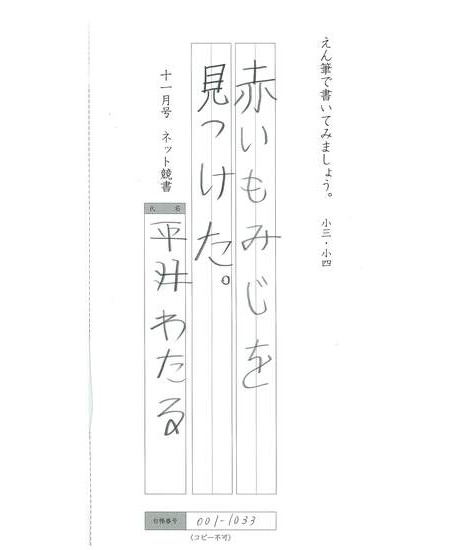 えん筆で書いてみましょう。 小三・小四
赤いもみじを
見つけた。
十一月号 ネット競書
氏 名
平井わたる
会員番号 001-1033
(コピー不可)